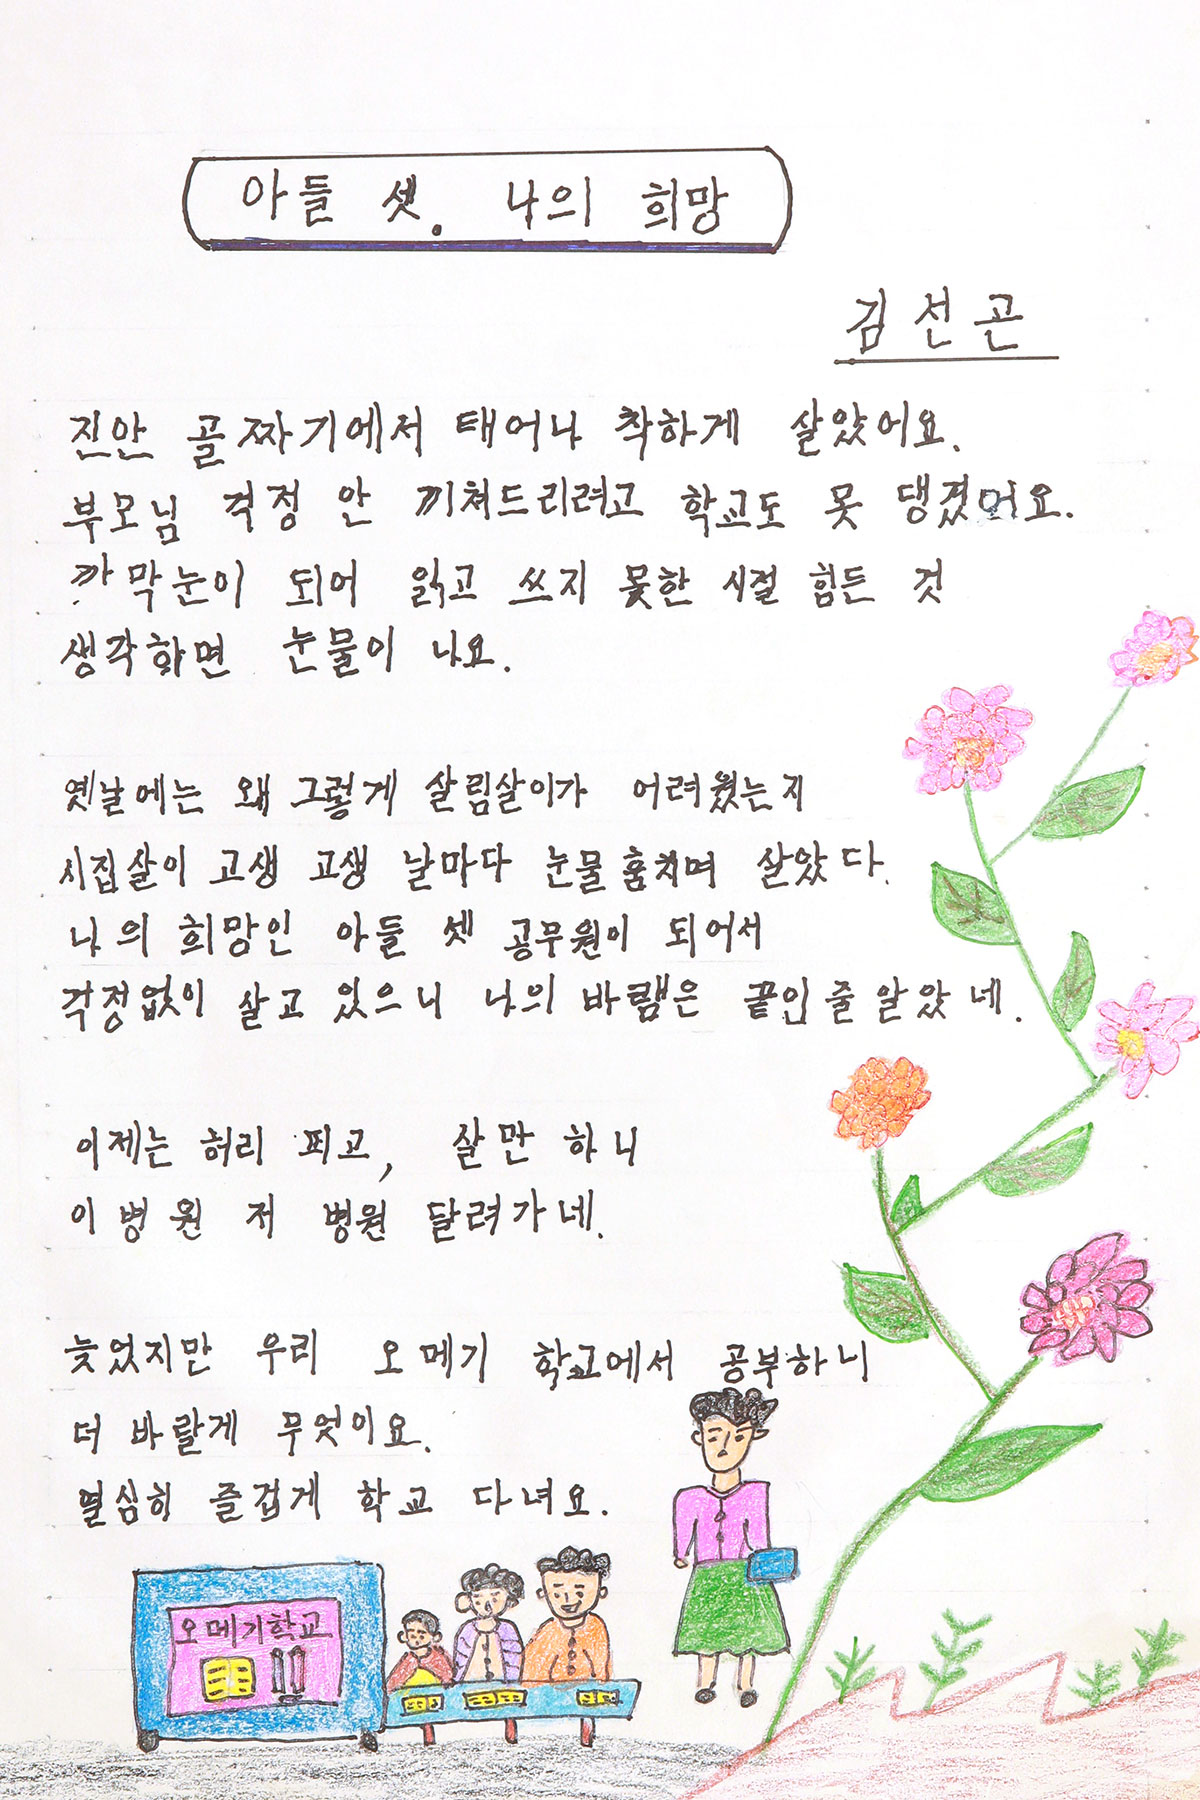 아들 셋. 나의 희망
김선곤
진안 골짜기에서 태어나 착하게 살았어요.
부모님 걱정 안 끼쳐드리려고 학교도 못 댕겼어요.
까막눈이 되어 읽고 쓰지 못한 시절 힘든 것
생각하면 눈물이 나요.
옛날에는 왜 그렇게 살림살이가 어려웠는지
시집살이 고생 고생 날마다 눈물 훔치며 살았다.
나의 희망인 아들 셋 공무원이 되어서
걱정없이 살고 있으니 나의 바램은 끝인 줄 알았네.
이제는 허리 피고, 살만 하니
이 병원 저 병원 달려가네.
늦었지만 우리 오메기 학교에서 공부하니
더 바랄게 무엇이요.
열심히 즐겁게 학교 다녀요.
오메기학교